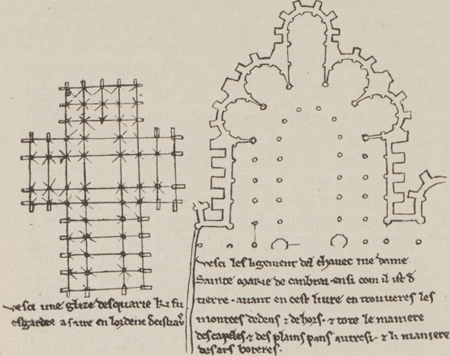 vesci une glize desquarie ki fu
esgardee a faire en lordene
vesci les ligement del chavec me dame
Sainte marie de canbrai · ensi com il ist d
tierre · avant en cest livre en trouveres les
montees dedens · & dehors · & tote le maniere
des capeles · & des plains pans autresi · & li maniere
des ars boteres ·